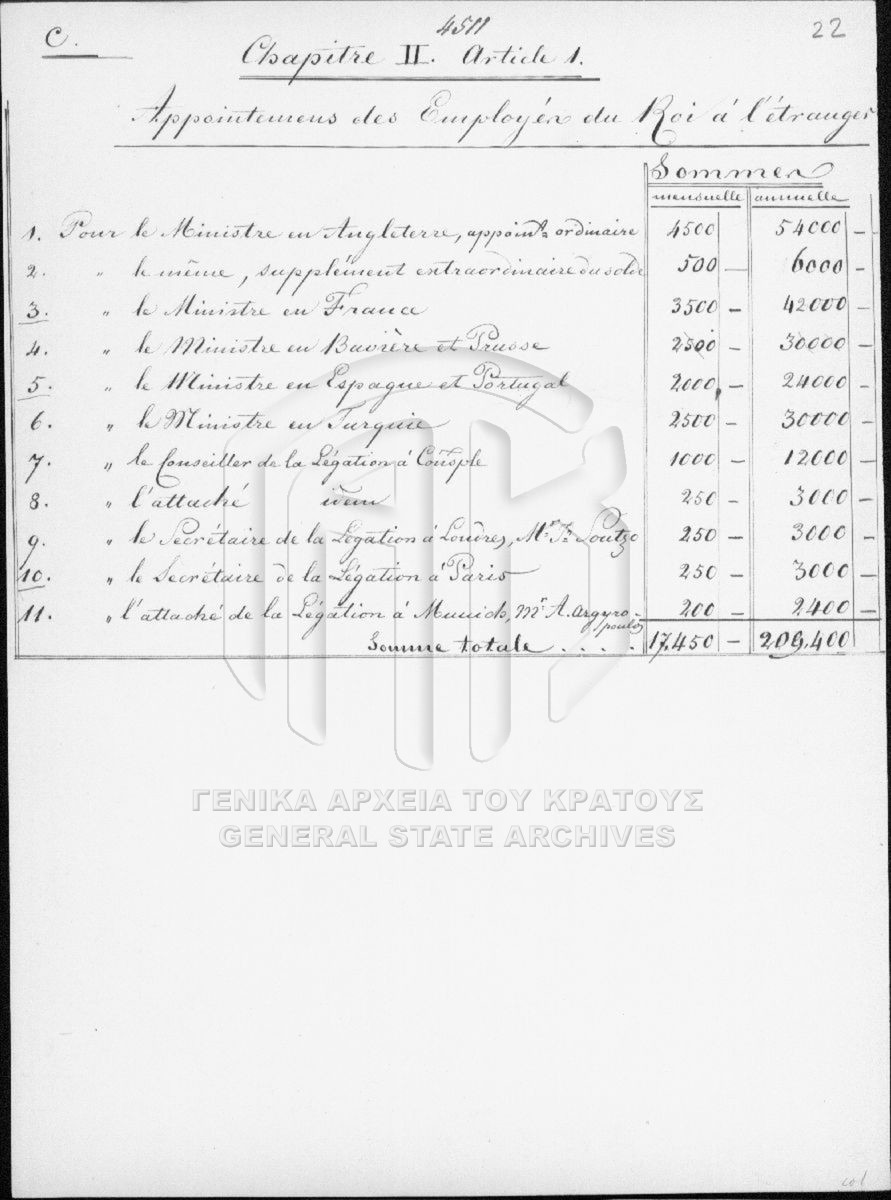 4511
C. 22
Chapitre II. Article 1.
Appointemens des Employés du Roi à l'étranger
Sommes
mensuelle annuelle
1. Pour le Ministre en Angleterre, appoint.s ordinaire 4500 54000 –
2. " le même, supplément extraordinaire du solde 500 – 6000 –
3. " le Ministre en France 3500 – 42000 –
4. " le Ministre en Bavière et Prusse 2500 – 30000 –
5. " le Ministre en Espagne et Portugal 2000 – 24000 –
6. " le Ministre en Turquie 2500 – 30000 –
7. " le Conseiller de la Légation à Constple 1000 – 12000 –
8. " l'attaché idem 250 – 3000 –
9. " le Secrétaire de la Légation à Londres, Mr. Soutzo 250 – 3000 –
10. " le Secrétaire de la Légation à Paris 250 – 3000 –
11. " l'attaché de la Légation à Munich, Mr A. Argyropoulos 200 – 2400 –
Somme totale . . . . 17,450 – 209,400
ΓΕΝΙΚΑ ΑΡΧΕΙΑ ΤΟΥ ΚΡΑΤΟΥΣ
GENERAL STATE ARCHIVES